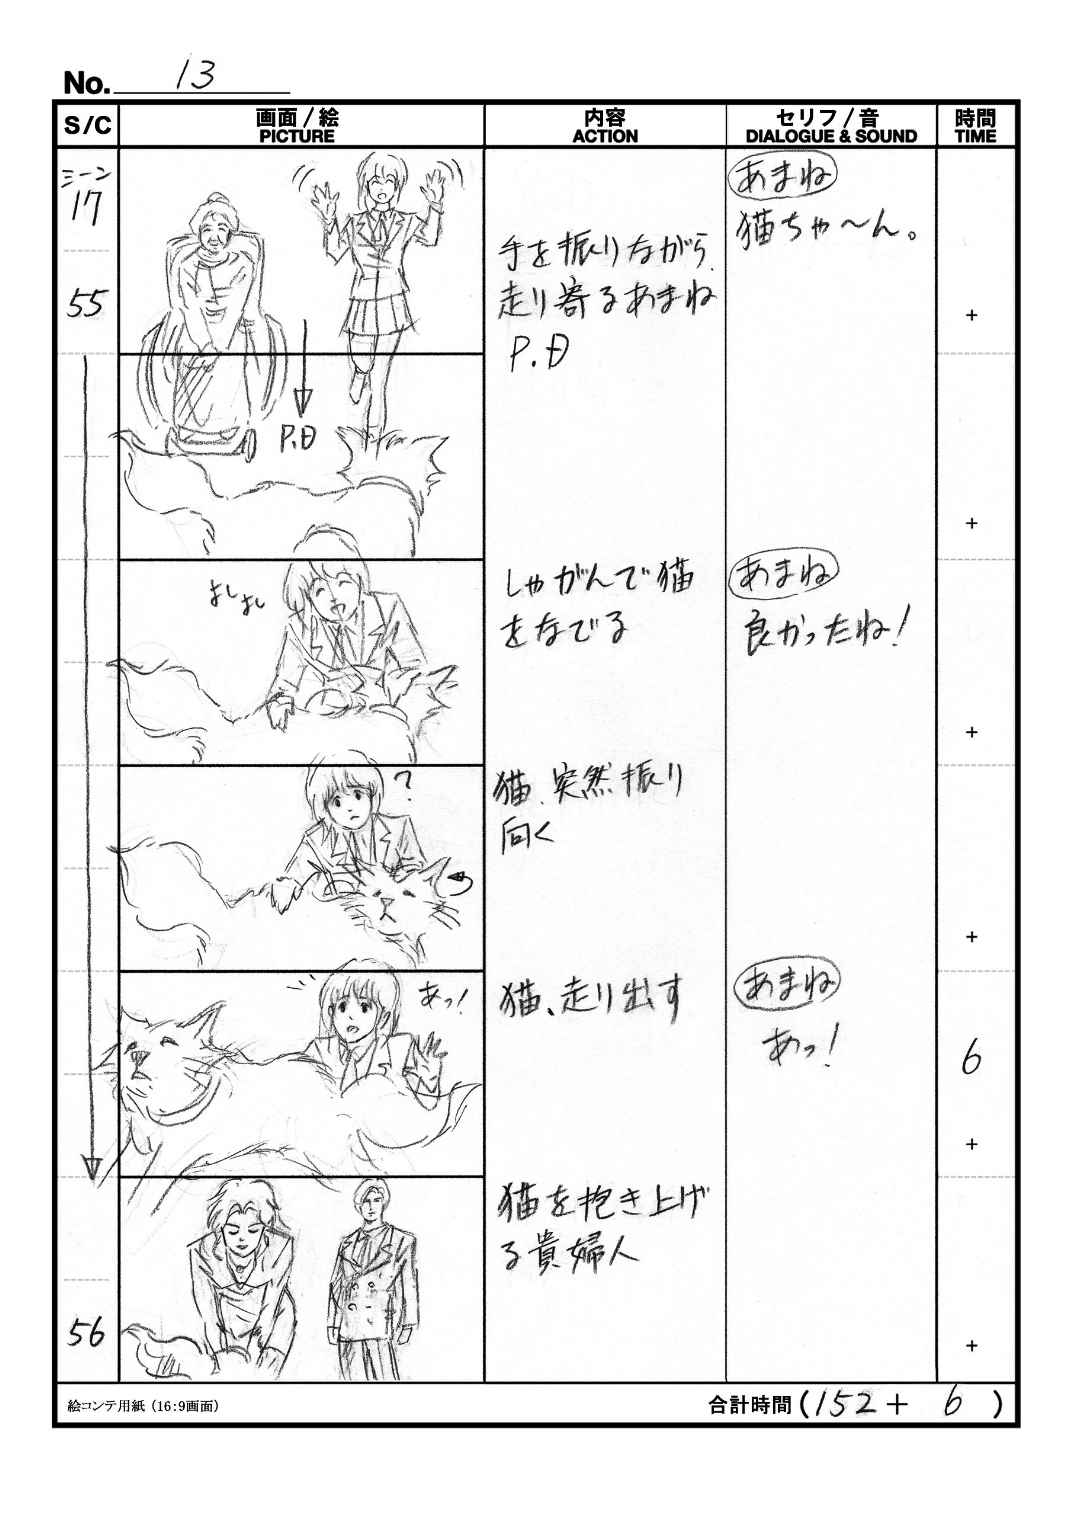 No. 13
S/C
画面/絵
PICTURE
内容
ACTION
セリフ/音
DIALOGUE & SOUND
時間
TIME
シーン
17
55
手を振りながら、
走り寄るあまね
P.D
あまね
猫ちゃ〜ん。
+
P.D
+
よしよし
しゃがんで猫
をなでる
あまね
良かったね!
+
?
猫、突然振り
向く
+
あっ!
猫、走り出す
あまね
あっ!
6
+
56
猫を抱き上げ
る貴婦人
+
絵コンテ用紙(16:9画面)
合計時間(152+ 6 )